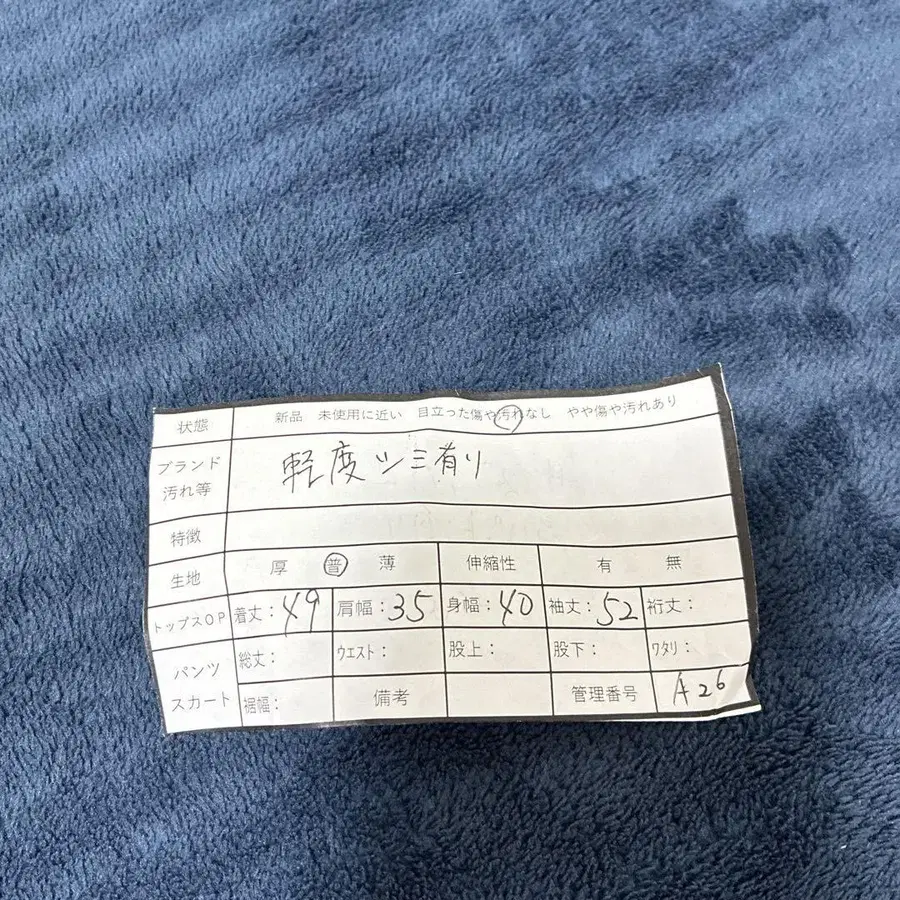 状態 新品 未使用に近い 目立った傷や汚れなし やや傷や汚れあり
ブランド
汚れ等
軽度シミ有り
特徴
生地 厚 普 薄 伸縮性 有 無
トップスOP 着丈:49 肩幅:35 身幅:40 袖丈:52 裄丈:
パンツ
スカート
総丈: ウエスト: 股上: 股下: ワタリ:
裾幅: 備考 管理番号 A26